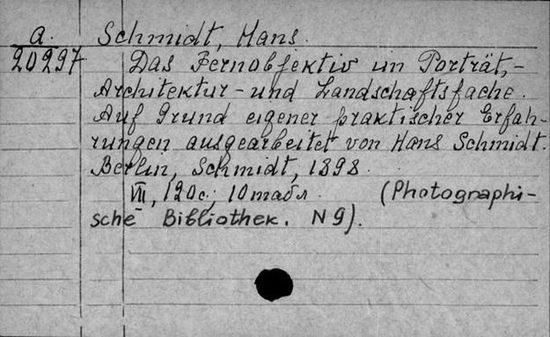 a. Schmidt, Hans.
20297 Das Fernobjektiv im Porträt,-
Architektur- und Landschaftsfache.
Auf Grund eigener praktischer Erfah-
rungen ausgearbeitet von Hans Schmidt.
Berlin, Schmidt, 1898.
VIII, 120 с., 10 табл. (Photographi-
sche Bibliothek. N 9).